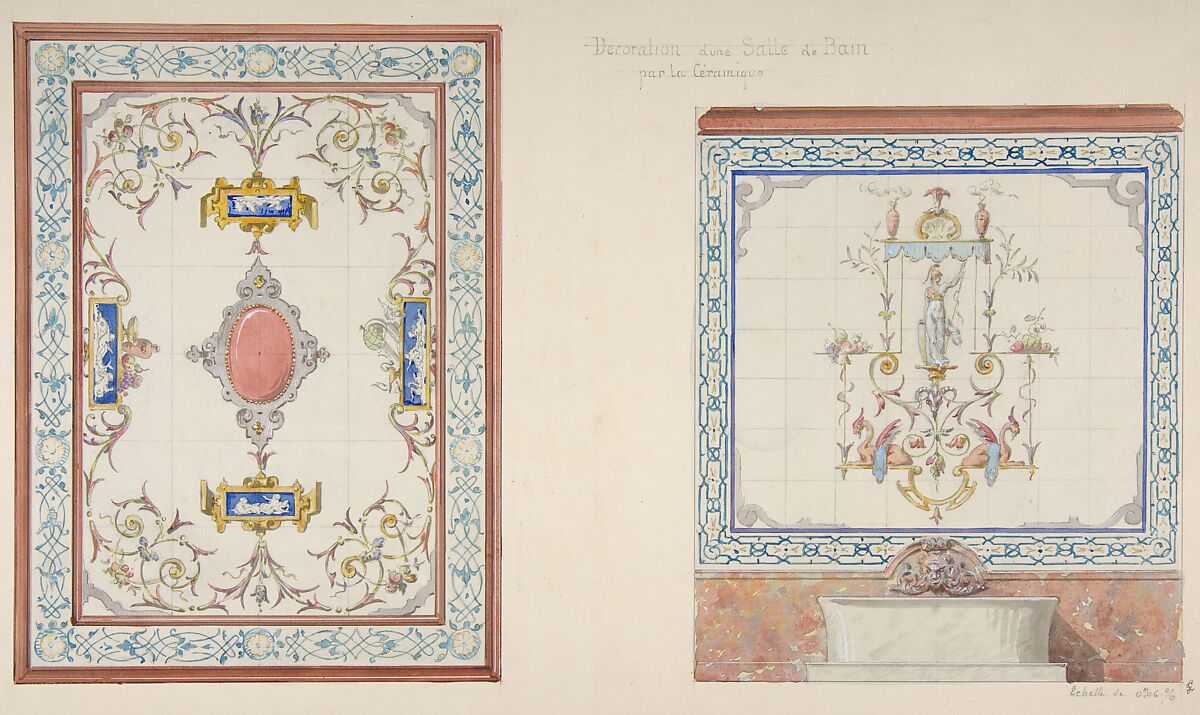 Decoration d'une Salle de Bain
par la Céramique
Echelle de 0.m06 %